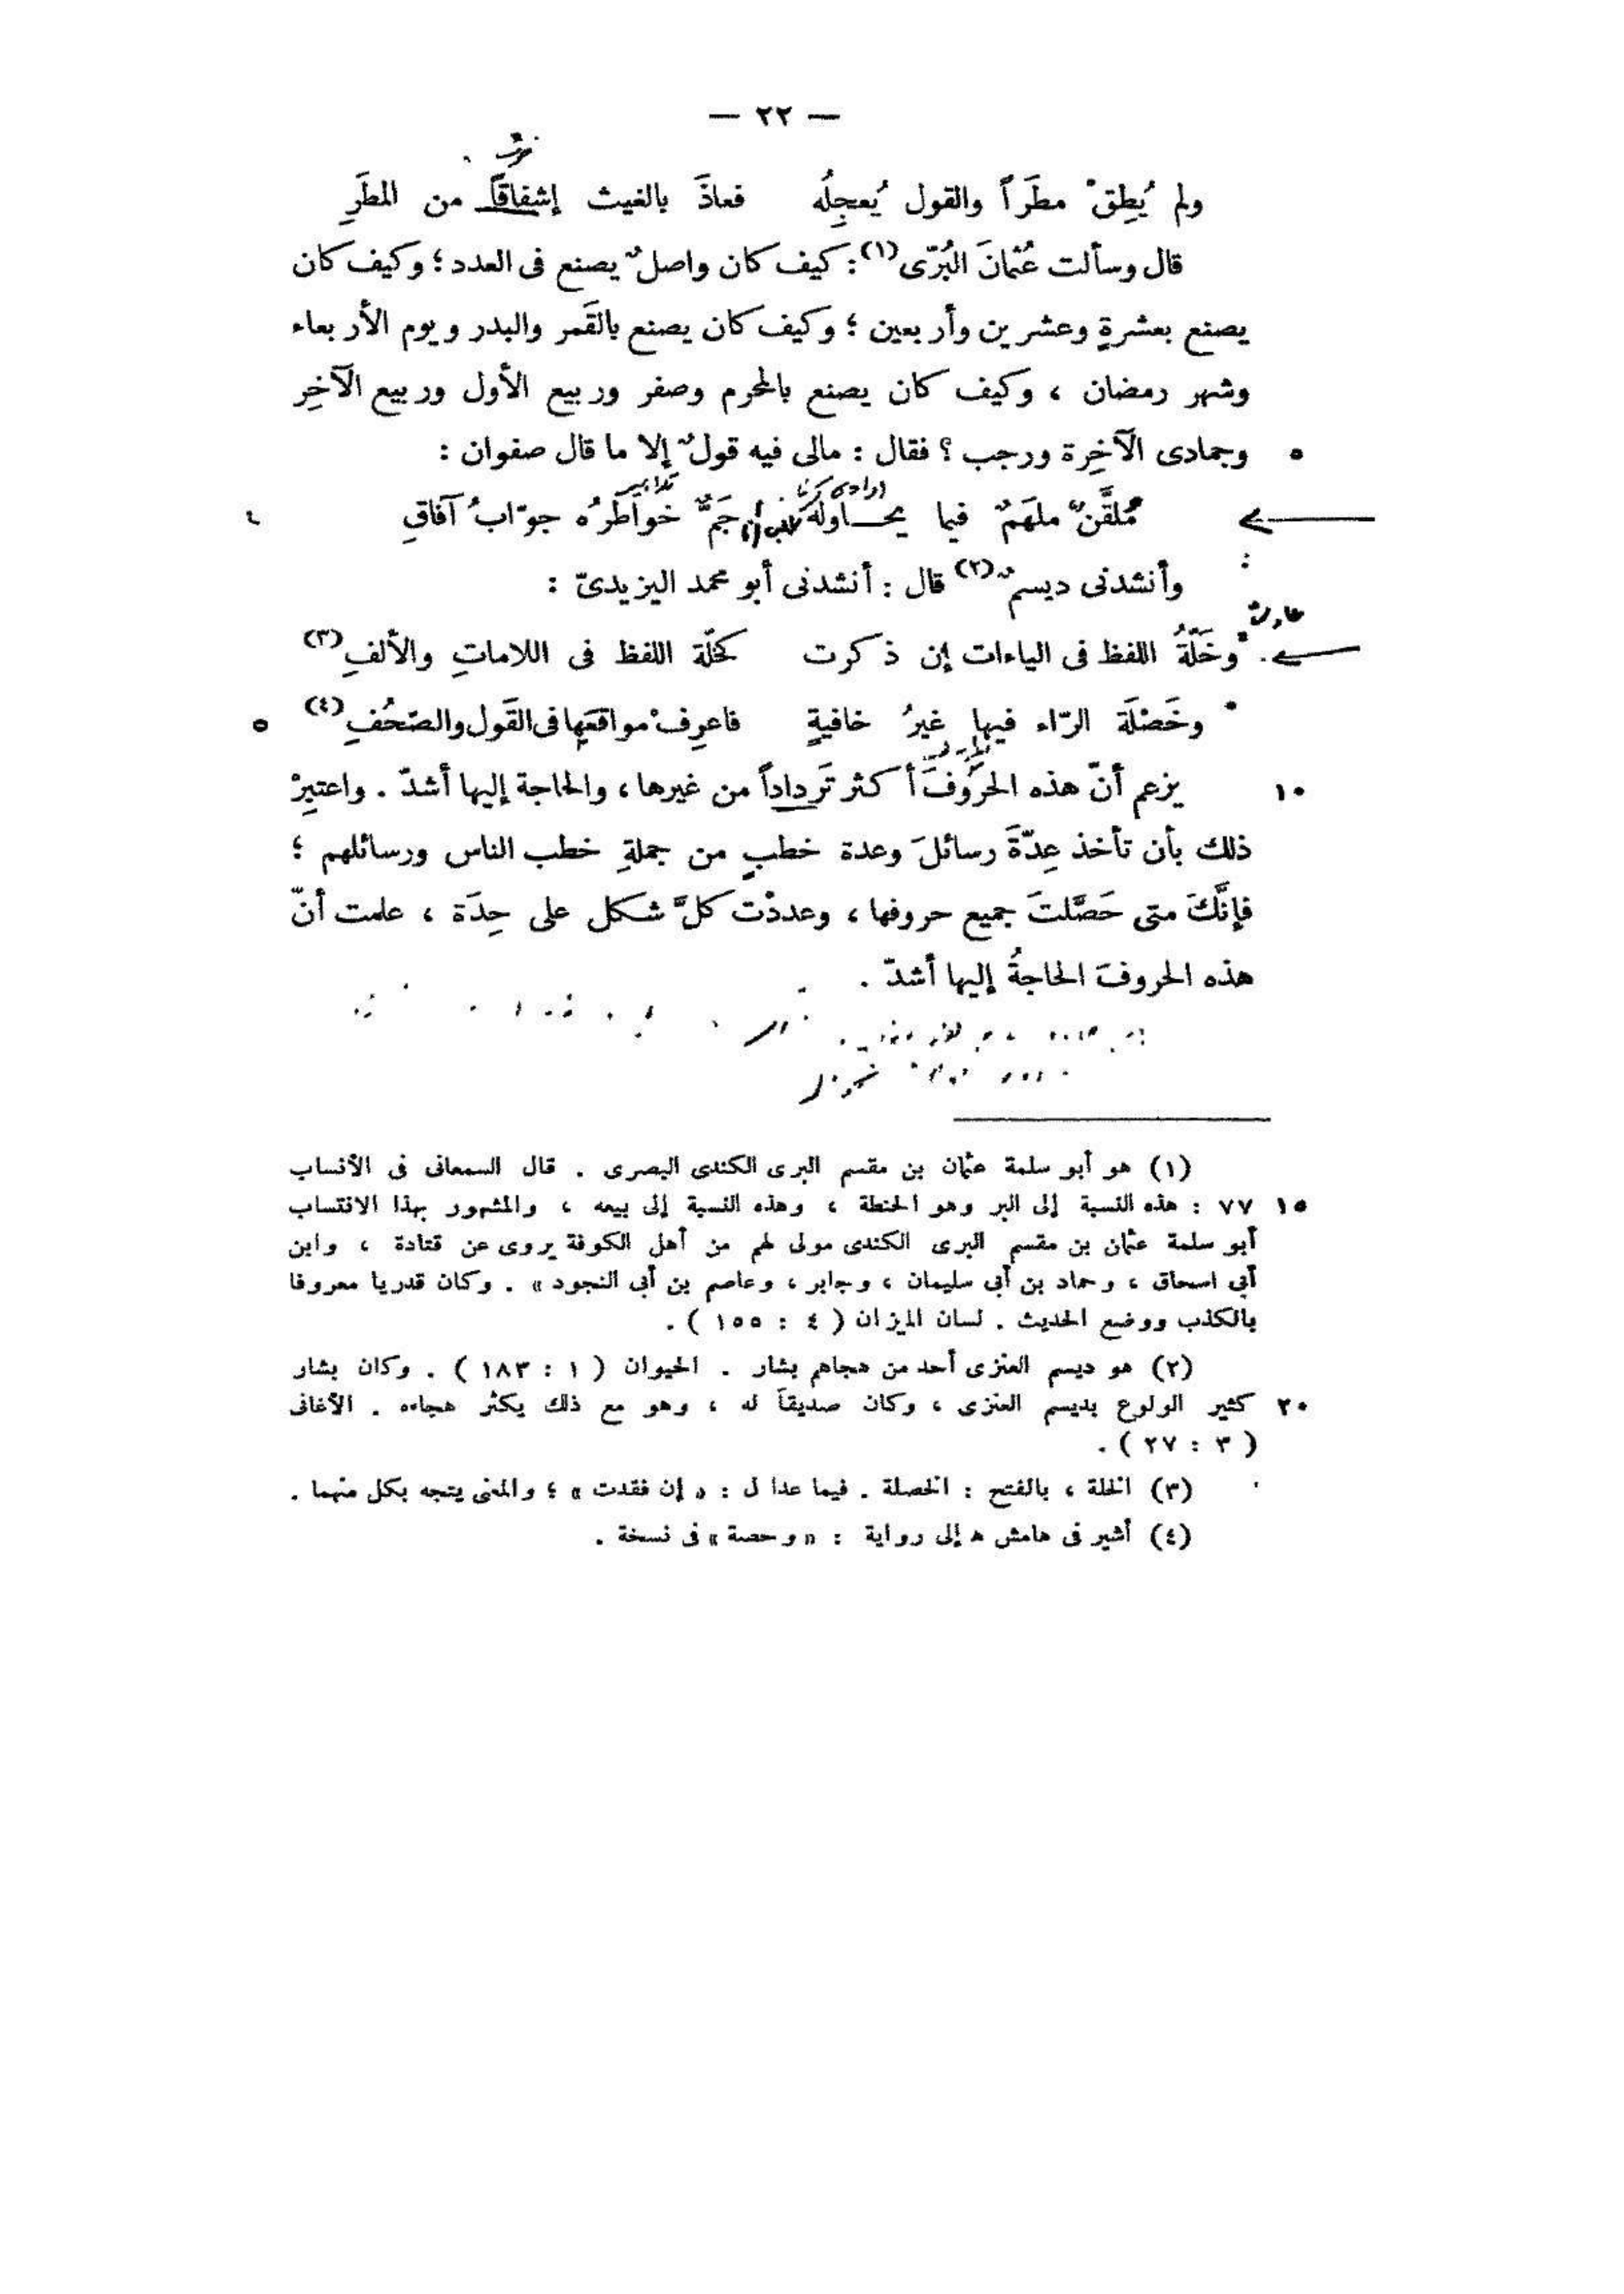 — ٢٢ —
ولم يُطِقْ مطَراً والقول يُعجِلُه فعاذَ بالغيث إشفاقاً من المطَرِ
قال وسألت عُثمانَ البُرّى (١) : كيف كان واصلٌ يصنع فى العدد ؛ وكيف كان
يصنع بعشرةٍ وعشرين وأربعين ؛ وكيف كان يصنع بالقَمر والبدر ويوم الأربعاء
وشهر رمضان ، وكيف كان يصنع بالمحرم وصفر وربيع الأول وربيع الآخِر
٥ وجمادى الآخِرة ورجب ؟ فقال : مالى فيه قولٌ إلا ما قال صفوان :
مُلقَّنٌ ملهَمٌ فيما يحـاوله جَمٌّ خواطرُه جوّابُ آفاقِ
وأنشدنى ديسمٌ (٢) قال : أنشدنى أبو محمد اليزيدىّ :
وخَلّةُ اللفظ فى الياءات إن ذكرت كخلّة اللفظ فى اللاماتِ والألفِ (٣)
وخَصْلَة الرّاء فيها غيرُ خافيةٍ فاعرِفْ مواقعَها فى القَول والصّحُفِ (٤) ٥
١٠ يزعم أنّ هذه الحرُوفَ أكثر تَرداداً من غيرها ، والحاجة إليها أشدّ . واعتبِرْ
ذلك بأن تأخذ عِدّةَ رسائلَ وعدة خطبٍ من جملةِ خطب الناس ورسائلهم ؛
فإنَّكَ متى حَصَّلتَ جميع حروفها ، وعددْت كلَّ شكل على حِدَة ، علمت أنّ
هذه الحروفَ الحاجةُ إليها أشدّ .
(١) هو أبو سلمة عثمان بن مقسم البرى الكندى البصرى . قال السمعانى فى الأنساب
١٥ ٧٧ : هذه النسبة إلى البر وهو الحنطة ، وهذه النسبة إلى بيعه ، والمشهور بهذا الانتساب
أبو سلمة عثمان بن مقسم البرى الكندى مولى لهم من أهل الكوفة يروى عن قتادة ، وابن
أبي اسحاق ، وحماد بن أبى سليمان ، وجابر ، وعاصم بن أبى النجود » . وكان قدريا معروفا
بالكذب ووضع الحديث . لسان الميزان ( ٤ : ١٥٥ ) .
(٢) هو ديسم العنزى أحد من هجاهم بشار . الحيوان ( ١ : ١٨٣ ) . وكان بشار
٢٠ كثير الولوع بديسم العنزى ، وكان صديقاً له ، وهو مع ذلك يكثر هجاءه . الأغانى
( ٣ : ٢٧ ) .
(٣) الخلة ، بالفتح : الخصلة . فيما عدا ل : « إن فقدت » ؛ والمعنى يتجه بكل منهما .
(٤) أشير فى هامش ﻫ إلى رواية : « وحصة » فى نسخة .